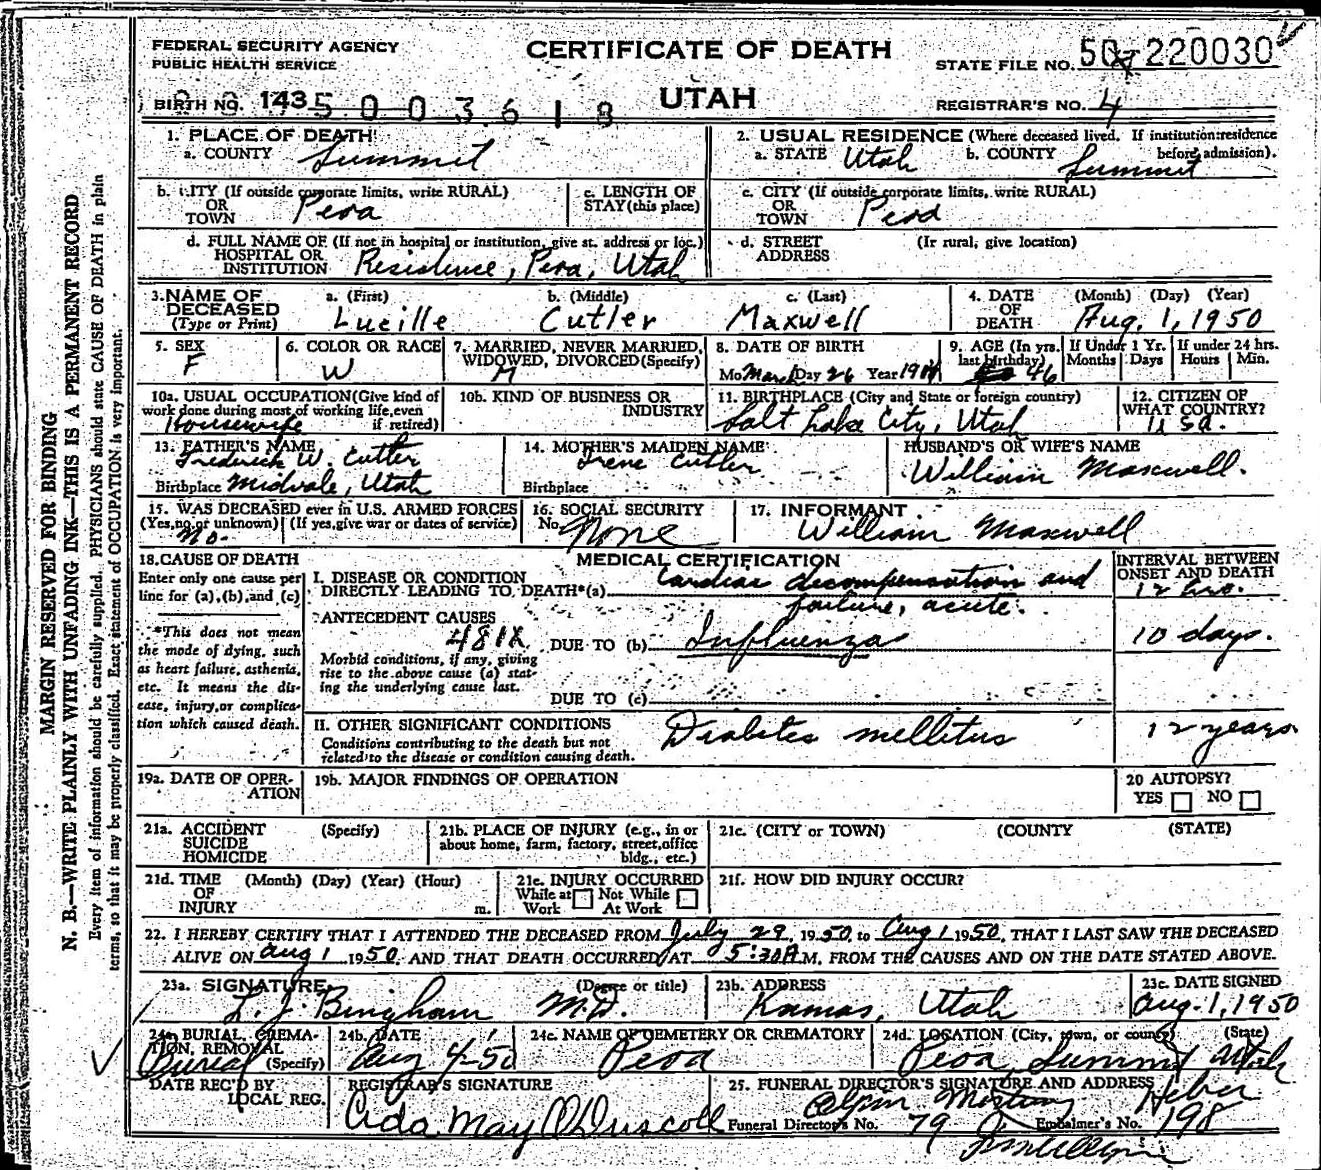 FEDERAL SECURITY AGENCY
PUBLIC HEALTH SERVICE
CERTIFICATE OF DEATH
UTAH
STATE FILE NO. 50 220030
BIRTH NO. 143 5003618
REGISTRAR'S NO. 4
MARGIN RESERVED FOR BINDING
N. B.—WRITE PLAINLY WITH UNFADING INK—THIS IS A PERMANENT RECORD
Every item of information should be carefully supplied. PHYSICIANS should state CAUSE OF DEATH in plain
terms, so that it may be properly classified. Exact statement of OCCUPATION is very important.
1. PLACE OF DEATH
a. COUNTY Summit
2. USUAL RESIDENCE (Where deceased lived. If institution: residence before admission).
a. STATE Utah b. COUNTY Summit
b. CITY (If outside corporate limits, write RURAL)
OR
TOWN Peoa
c. LENGTH OF
STAY (this place)
c. CITY (If outside corporate limits, write RURAL)
OR
TOWN Peoa
d. FULL NAME OF (If not in hospital or institution, give st. address or loc.)
HOSPITAL OR
INSTITUTION Residence, Peoa, Utah
d. STREET (If rural, give location)
ADDRESS
3. NAME OF
DECEASED
(Type or Print)
a. (First) b. (Middle) c. (Last)
Lucille Cutler Maxwell
4. DATE (Month) (Day) (Year)
OF
DEATH Aug. 1, 1950
5. SEX
F
6. COLOR OR RACE
W
7. MARRIED, NEVER MARRIED,
WIDOWED, DIVORCED (Specify)
M
8. DATE OF BIRTH
Mo March Day 26 Year 1904
9. AGE (In yrs. last birthday) 46
If Under 1 Yr. Months Days
If under 24 hrs. Hours Min.
10a. USUAL OCCUPATION (Give kind of
work done during most of working life, even
if retired)
Housewife
10b. KIND OF BUSINESS OR
INDUSTRY
11. BIRTHPLACE (City and State or foreign country)
Salt Lake City, Utah
12. CITIZEN OF
WHAT COUNTRY?
USA.
13. FATHER'S NAME
Frederick W. Cutler
Birthplace Midvale, Utah
14. MOTHER'S MAIDEN NAME
Irene Cutler
Birthplace
HUSBAND'S OR WIFE'S NAME
William Maxwell.
15. WAS DECEASED ever in U.S. ARMED FORCES
(Yes, no, or unknown) (If yes, give war or dates of service)
No.
16. SOCIAL SECURITY
No. None
17. INFORMANT
William Maxwell
18. CAUSE OF DEATH
Enter only one cause per
line for (a), (b), and (c)
*This does not mean
the mode of dying, such
as heart failure, asthenia,
etc. It means the dis-
ease, injury, or complica-
tion which caused death.
MEDICAL CERTIFICATION
INTERVAL BETWEEN
ONSET AND DEATH
I. DISEASE OR CONDITION
DIRECTLY LEADING TO DEATH*(a) Cardiac decompensation and
failure, acute. 12 hrs.
ANTECEDENT CAUSES
481X
DUE TO (b) Influenza 10 days.
Morbid conditions, if any, giving
rise to the above cause (a) stat-
ing the underlying cause last.
DUE TO (c)
II. OTHER SIGNIFICANT CONDITIONS
Conditions contributing to the death but not
related to the disease or condition causing death.
Diabetes mellitus 12 years.
19a. DATE OF OPER-
ATION
19b. MAJOR FINDINGS OF OPERATION
20 AUTOPSY?
YES NO
21a. ACCIDENT (Specify)
SUICIDE
HOMICIDE
21b. PLACE OF INJURY (e.g., in or
about home, farm, factory, street, office
bldg., etc.)
21c. (CITY or TOWN) (COUNTY) (STATE)
21d. TIME (Month) (Day) (Year) (Hour)
OF
INJURY m.
21e. INJURY OCCURRED
While at Work Not While At Work
21f. HOW DID INJURY OCCUR?
22. I HEREBY CERTIFY THAT I ATTENDED THE DECEASED FROM July 29, 1950, to Aug 1 1950, THAT I LAST SAW THE DECEASED
ALIVE ON Aug 1 1950, AND THAT DEATH OCCURRED AT 5:30 A.M. FROM THE CAUSES AND ON THE DATE STATED ABOVE.
23a. SIGNATURE (Degree or title)
L. J. Bingham M.D.
23b. ADDRESS
Kamas, Utah
23c. DATE SIGNED
Aug. 1, 1950
24a. BURIAL, CREMA-
TION, REMOVAL
(Specify)
Burial
24b. DATE
Aug 4-50
24c. NAME OF CEMETERY OR CREMATORY
Peoa
24d. LOCATION (City, town, or county) (State)
Peoa, Summit Utah
DATE REC'D BY
LOCAL REG.
REGISTRAR'S SIGNATURE
Ada May O'Driscoll
25. FUNERAL DIRECTOR'S SIGNATURE AND ADDRESS
Mortuary Heber
Funeral Director's No. 79 Embalmer's No. 198